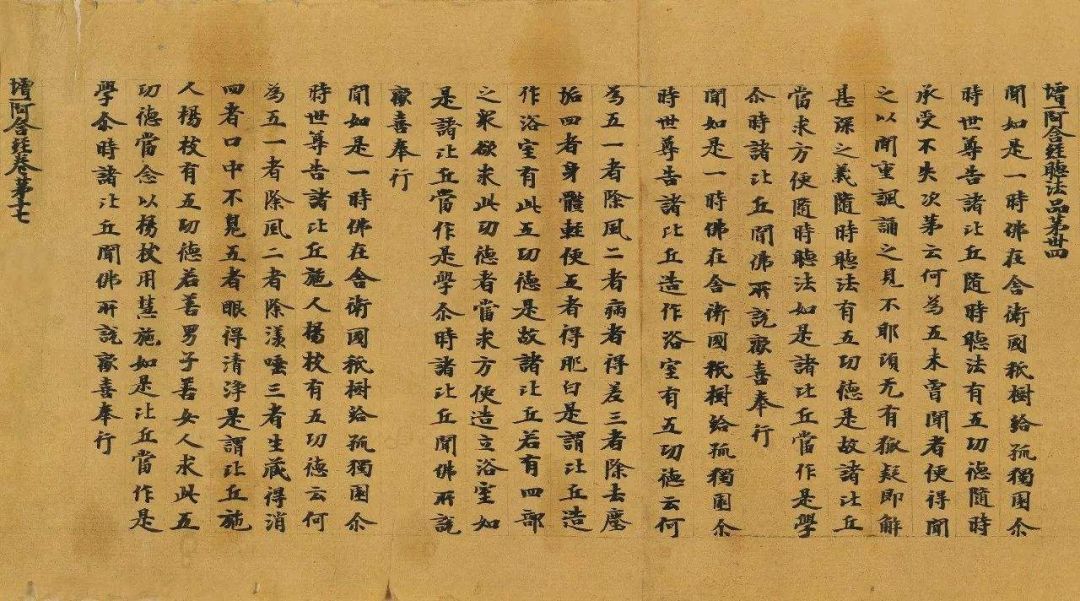 增一阿含經聽法品第卌四
聞如是一時佛在舍衛國祇樹給孤獨園尒
時世尊告諸比丘隨時聽法有五功德隨時
承受不失次第云何為五未曾聞者便得聞
之以聞重諷誦之見不耶傾无有狐疑即解
甚深之義隨時聽法有五功德是故諸比丘
當求方便隨時聽法如是諸比丘當作是學
尒時諸比丘聞佛所說歡喜奉行
聞如是一時佛在舍衛國祇樹給孤獨園尒
時世尊告諸比丘造作浴室有五功德云何
為五一者除風二者病者得差三者除去塵
垢四者身體輕便五者得肥白是謂比丘造
作浴室有此五功德是故諸比丘若有四部
之眾欲求此功德者當求方便造立浴室如
是諸比丘當作是學尒時諸比丘聞佛所說
歡喜奉行
聞如是一時佛在舍衛國祇樹給孤獨園尒
時世尊告諸比丘施人楊枝有五功德云何
為五一者除風二者除漾唾三者生藏得消
四者口中不臰五者眼得清淨是謂比丘施
人楊枝有五功德若善男子善女人求此五
功德當念以楊枝用惠施如是比丘當作是
學尒時諸比丘聞佛所說歡喜奉行
增一阿含經卷第十七